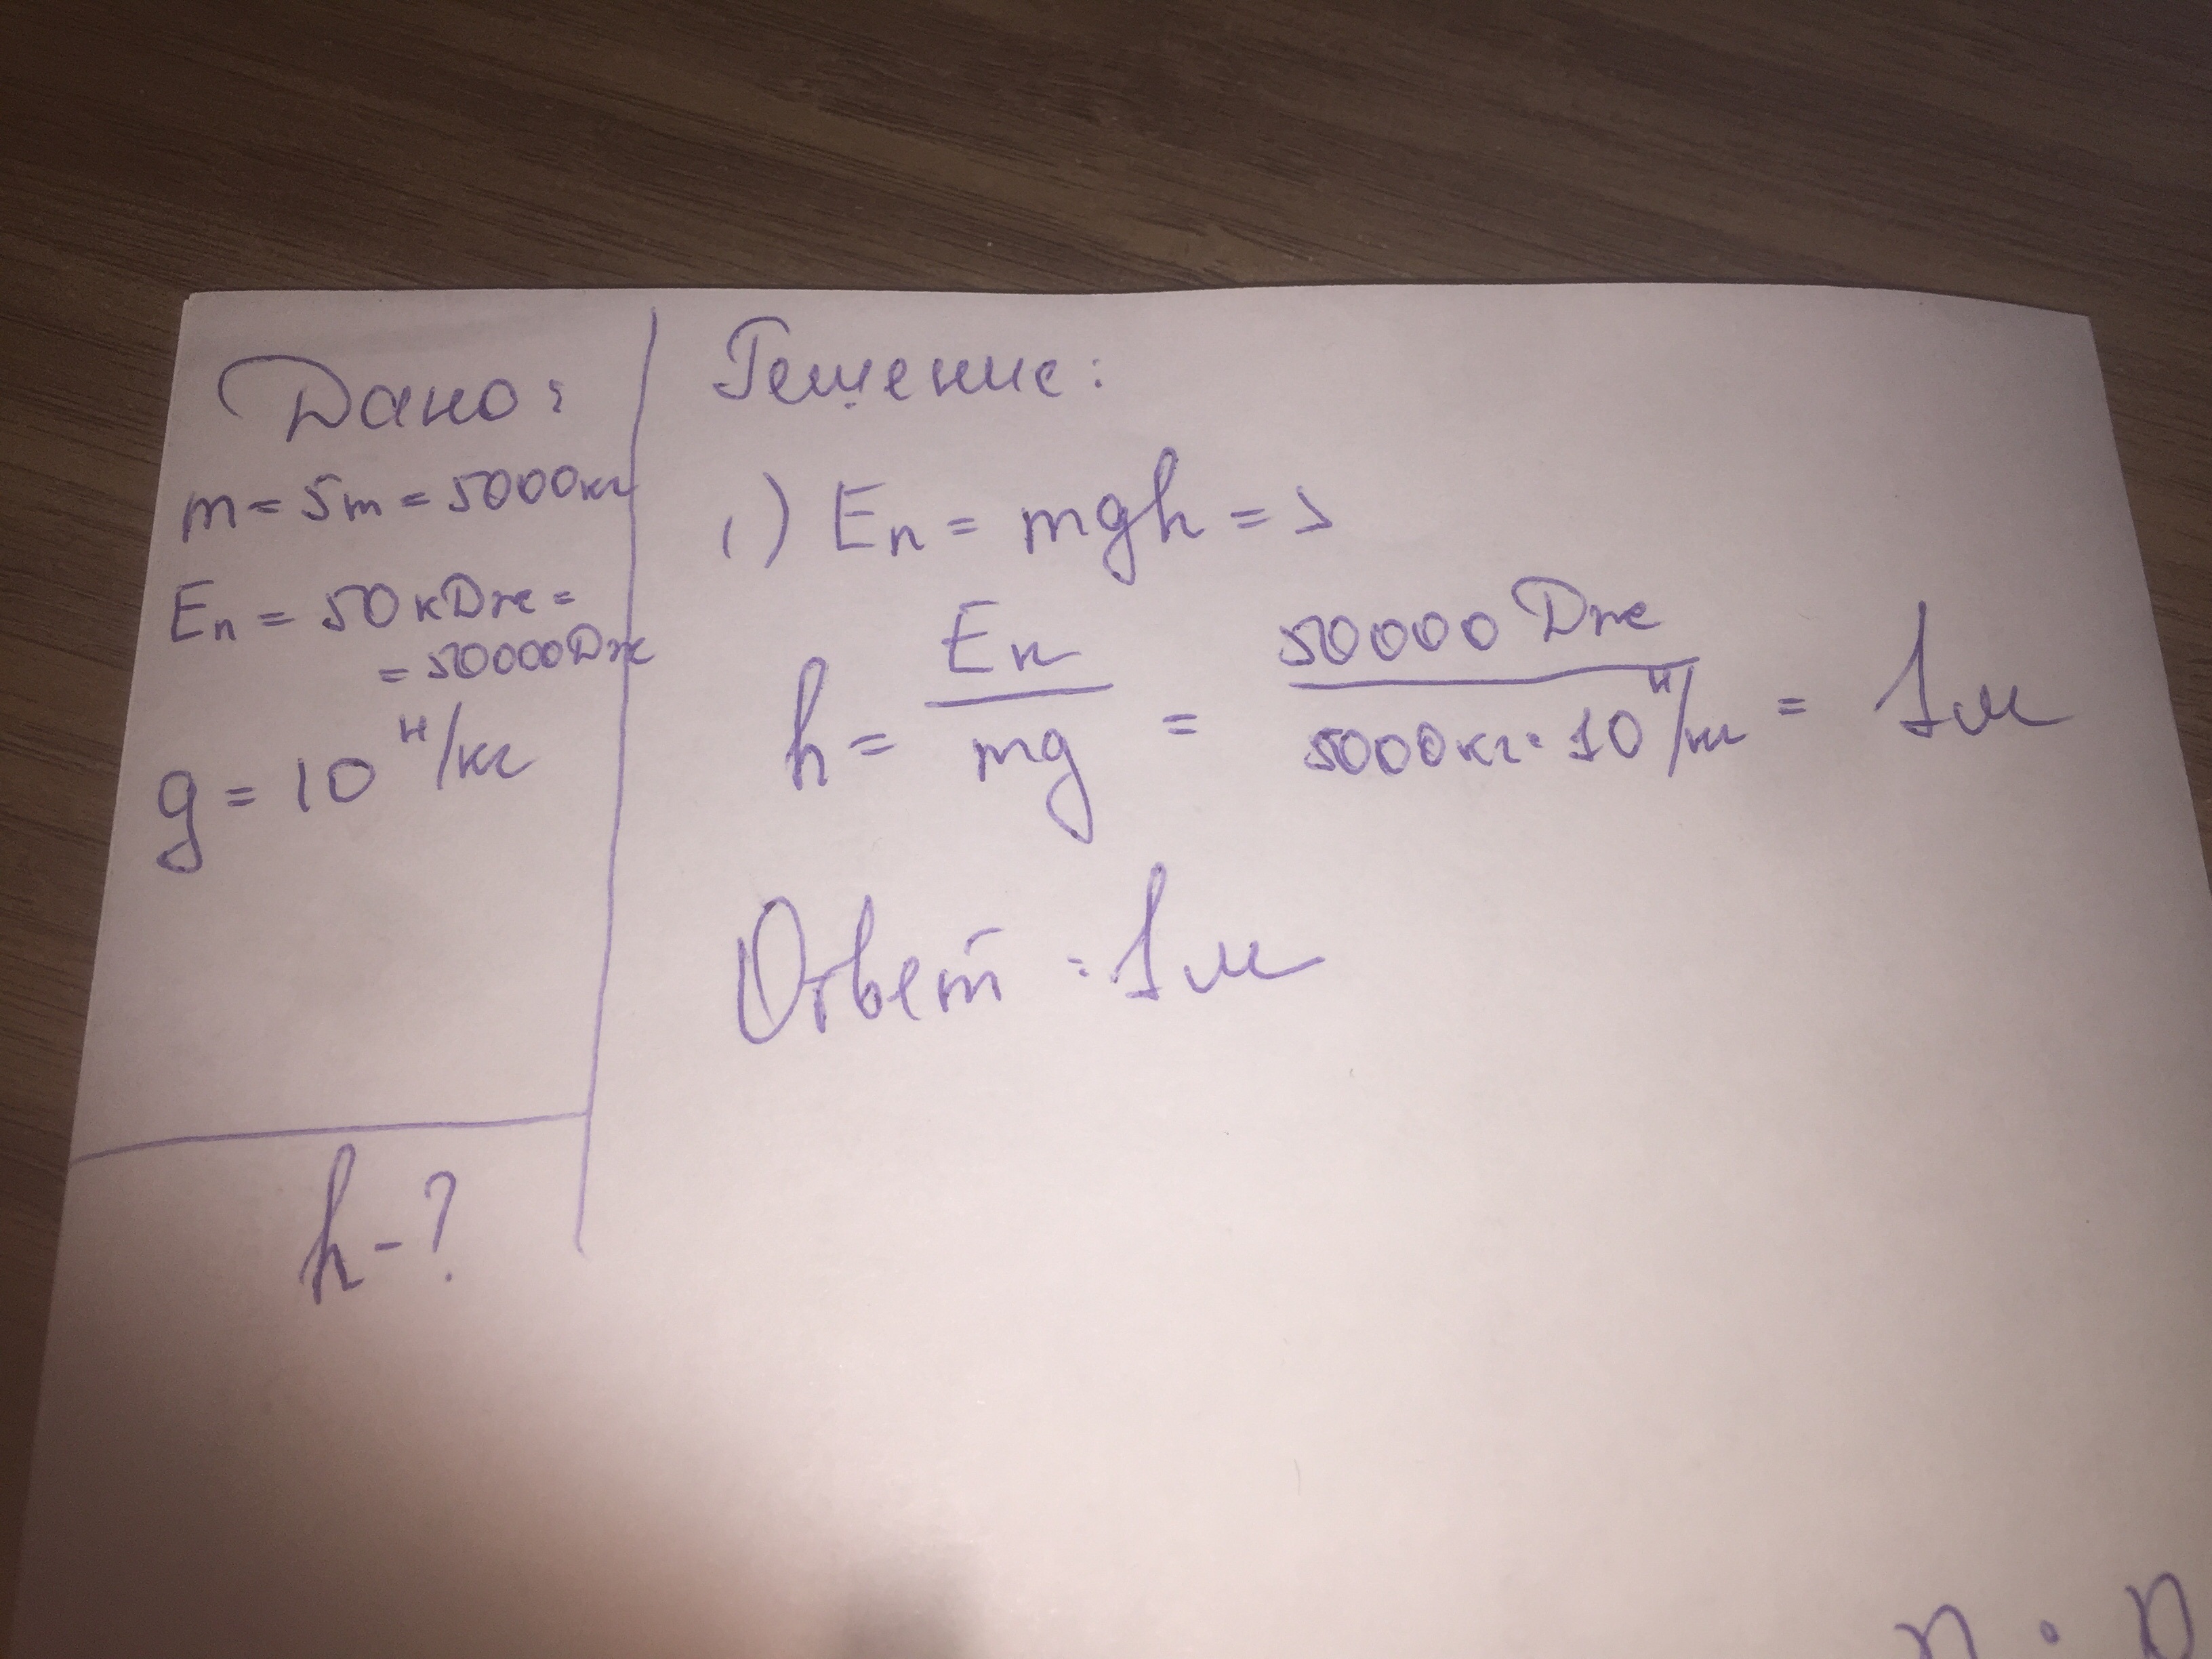 Дано:
m = 5т = 5000кг
Eп = 50 кДж =
= 50000Дж
g = 10 Н/кг
h - ?
Решение:
1) Eп = mgh =>
h = Eп/mg = 50000 Дж/5000кг · 10 Н/кг = 1м
Ответ: 1м